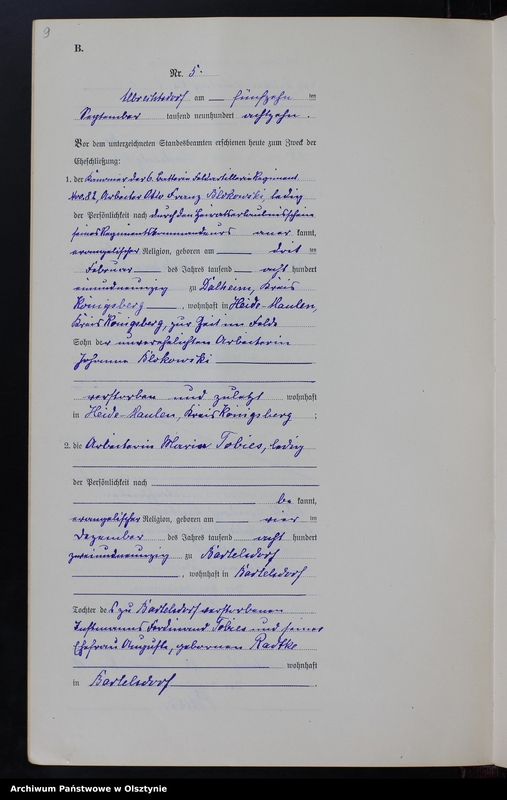 9
B.
Nr. 5.
Albrechtsdorf am fünfzehn ten
September tausend neunhundert achtzehn.
Vor dem unterzeichneten Standesbeamten erschienen heute zum Zweck der
Eheschließung:
1. der Kanonier der 6. Batterie Feldartillerie Regiment
Nro. 82, Arbeiter Otto Franz Blokowski, ledig
der Persönlichkeit nach durch den Heiratserlaubnisschein
seines Regimentskommandeurs aner kannt,
evangelischer Religion, geboren am drit ten
Februar des Jahres tausend acht hundert
einundneunzig zu Dalheim, Kreis
Königsberg, wohnhaft in Heide-Maulen,
Kreis Königsberg, zur Zeit im Felde
Sohn der unverehelichten Arbeiterin
Johanna Blokowski
verstorben und zuletzt wohnhaft
in Heide-Maulen, Kreis Königsberg;
2. die Arbeiterin Maria Tobies, ledig
der Persönlichkeit nach
be kannt,
evangelischer Religion, geboren am vier ten
Dezember des Jahres tausend acht hundert
zweiundneunzig zu Bartelsdorf
, wohnhaft in Bartelsdorf
Tochter des zu Bartelsdorf verstorbenen
Instmanns Ferdinand Tobies und seiner
Ehefrau Auguste, gebornen Radtke
wohnhaft
in Bartelsdorf.
Archiwum Państwowe w Olsztynie